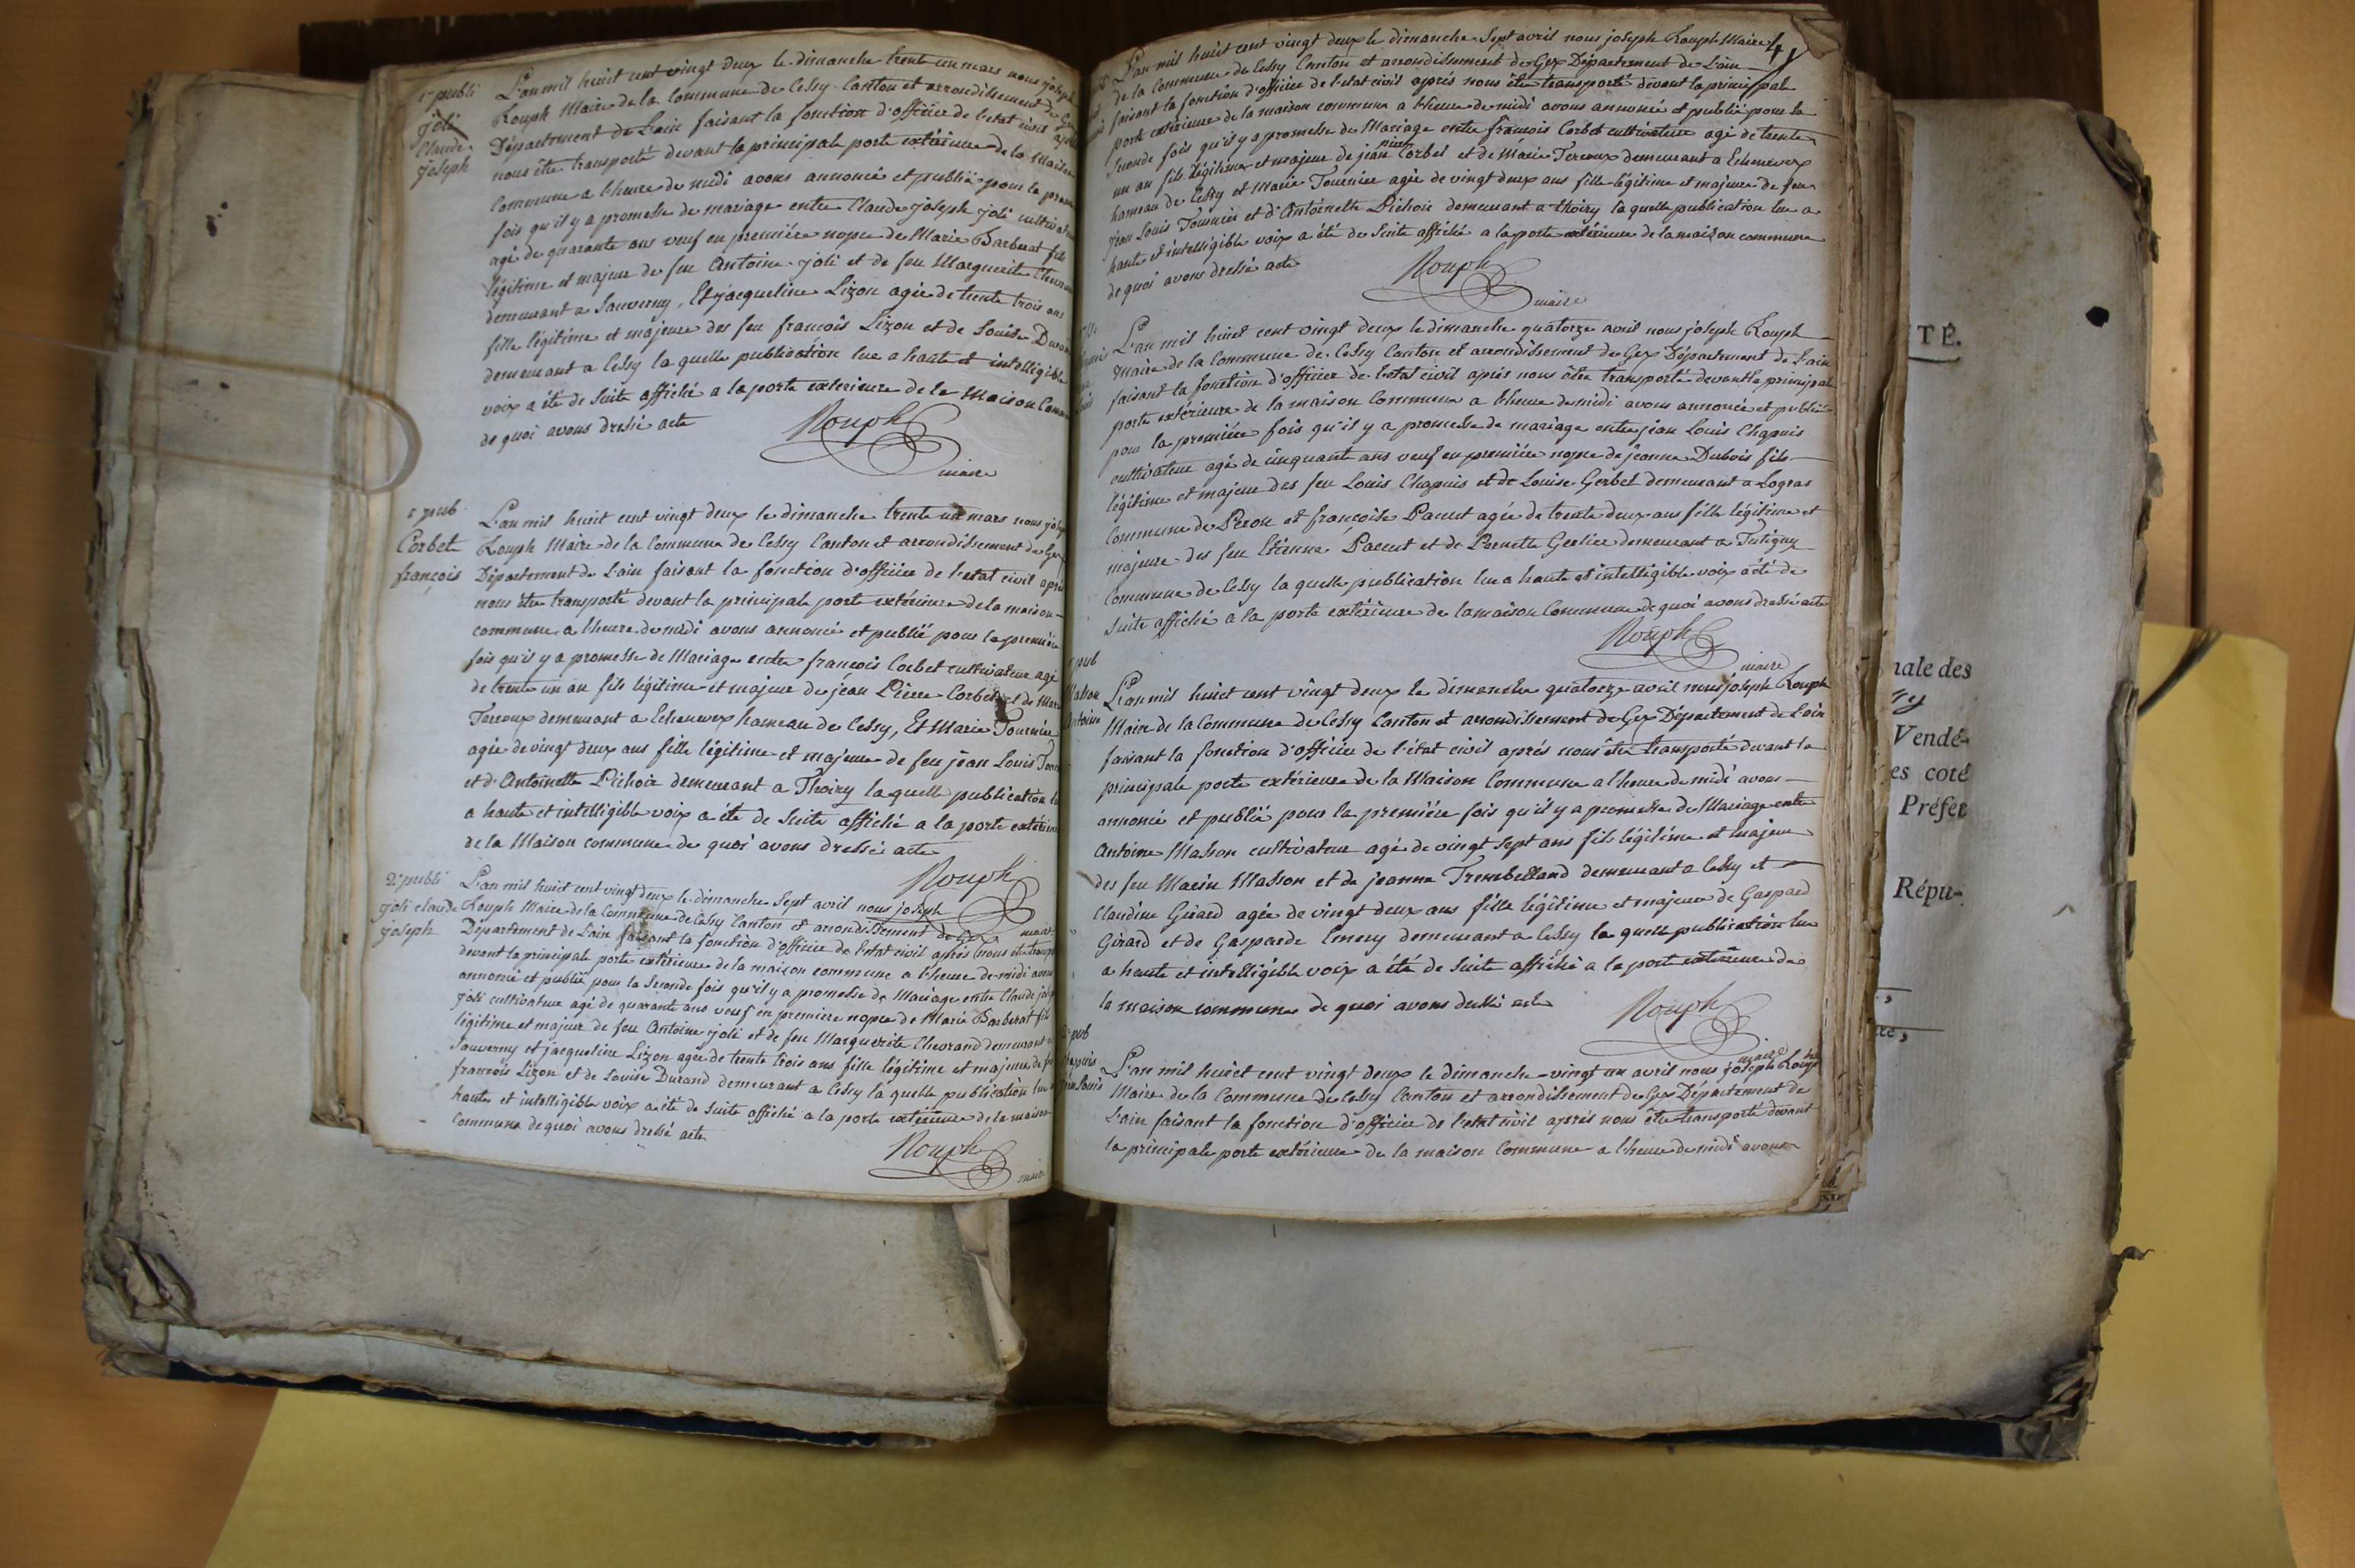 1e publi
joli
Claude
joseph
L'an mil huit cent vingt deux le dimanche trente un mars nous joseph
Rouph Maire de la Commune de Cessy Canton et arrondissement de Gex
Département de L'ain faisant la fonction d'officier de l'etat civil après
nous être transporté devant la principale porte extérieure de la Maison
Commune a l'heure de midi avons annoncé et publié pour la
fois qu'il y a promesse de mariage entre Claude joseph joli
agé de quarante ans veuf en première nopce de Marie Barberat fils
légitime et majeur de feu Antoine joli et de feu Marguerite
demeurant a Sauverny, Et jacqueline Lizon agée de trente trois ans
fille légitime et majeure des feu françois Lizon et de Louise
demeurant a Cessy la quelle publication lue a haute et intelligible
voix a été de suite affiché a la porte exterieure de la Maison
de quoi avons dressé acte
Rouph
maire
1e pub
Corbet
françois
L'an mil huit cent vingt deux le dimanche trente un mars nous
Rouph Maire de la Commune de Cessy Canton et arrondissement de Gex
Département de L'ain faisant la fonction d'officier de l'etat civil après
nous être transporté devant la principale porte extérieure de la maison
commune a l'heure de midi avons annoncé et publié pour la première
fois qu'il y a promesse de Mariage entre françois Corbet cultivateur agé
de trente un an fils légitime et majeur de jean Pierre Corbet et de
Terroux demeurant a Echenevex hameau de Cessy, Et Marie Tournier
agée de vingt deux ans fille légitime et majeure de feu jean Louis
et d'Antoinette Pichoir demeurant a Thoiry la quelle publication
a haute et intelligible voix a été de suite affiché a la porte
de la Maison commune de quoi avons dressée acte
Rouph
maire
2e publi
joli claude
joseph
L'an mil huit cent vingt deux le dimanche sept avril nous joseph
Rouph Maire de la Commune de Cessy Canton et arrondissement de Gex
Département de L'ain faisant la fonction d'officier de l'etat civil après nous être
devant la principale porte extérieure de la maison commune a l'heure de midi avons
annoncé et publié pour la seconde fois qu'il y a promesse de Mariage entre Claude
joli cultivateur agé de quarante ans veuf en première nopce de Marie Barberat
légitime et majeur de feu Antoine joli et de feu Marguerite Chevrand demeurant
Sauverny et jacqueline Lizon agée de trente trois ans fille légitime et majeure de
françois Lizon et de Louise Durand demeurant a Cessy la quelle publication
haute et intelligible voix a été de suite affiché a la porte extérieure de la maison
Commune de quoi avons dressé acte
Rouph
maire
4
L'an mil huit cent vingt deux le dimanche sept avril nous joseph Rouph Maire
de la Commune de Cessy Canton et arrondissement de Gex Département de L'ain
faisant la fonction d'officier de l'etat civil après nous être transporté devant la principale
porte extérieure de la maison commune a l'heure de midi avons annoncé et publié pour la
seconde fois qu'il y a promesse de Mariage entre françois Corbet cultivateur agé de trente
un an fils légitime et majeur de jean Pierre Corbet et de Marie Terroux demeurant a Echenevex
hameau de Cessy et Marie Tournier agée de vingt deux ans fille légitime et majeure de feu
jean Louis Tournier et d'Antoinette Pichoir demeurant a thoiry la quelle publication lue a
haute et intelligible voix a été de suite affiché a la porte extérieure de la maison commune
de quoi avons dressé acte
Rouph
maire
L'an mil huit cent vingt deux le dimanche quatorze avril nous joseph Rouph
Maire de la Commune de Cessy Canton et arrondissement de Gex Département de L'ain
faisant la fonction d'officier de l'etat civil après nous être transporté devant la principale
porte extérieure de la maison Commune a l'heure de midi avons annoncé et publié
pour la première fois qu'il y a promesse de mariage entre jean Louis Chapuis
cultivateur agé de cinquante ans veuf en première nopce de jeanne Dubois fils
légitime et majeur des feu Louis Chapuis et de Louise Gerbet demeurant a Logras
Commune de Peron et françoise Pacut agée de trente deux ans fille légitime et
majeure des feu Etienne Pacut et de Pernette demeurant a Tutigny
Commune de Cessy la quelle publication lue a haute et intelligible voix a été de
suite affiché a la porte extérieure de la maison Commune de quoi avons dressé acte
Rouph
maire
pub
Masson
Antoine
L'an mil huit cent vingt deux le dimanche quatorze avril nous joseph Rouph
Maire de la Commune de Cessy Canton et arrondissement de Gex Département de L'ain
faisant la fonction d'officier de l'état civil après nous être transporté devant la
principale porte extérieure de la Maison Commune a l'heure de midi avons
annoncé et publié pour la première fois qu'il y a promesse de Mariage entre
Antoine Masson cultivateur agé de vingt sept ans fils légitime et majeur
des feu Marin Masson et de jeanne Trembelland demeurant a Cessy et
Claudine Girard agée de vingt deux ans fille légitime et majeure de Gaspard
Girard et de Gasparde Emery demeurant a Cessy la quelle publication lue
a haute et intelligible voix a été de suite affiché a la porte extérieure de
la maison commune de quoi avons dressé acte
Rouph
maire
pub
L'an mil huit cent vingt deux le dimanche vingt un avril nous joseph Rouph
Maire de la Commune de Cessy Canton et arrondissement de Gex Département de
L'ain faisant la fonction d'officier de l'etat civil après nous être transporté devant
la principale porte extérieure de la maison Commune a l'heure de midi avons
TÉ.
nale des
Vendé-
es coté
Préfet
Répu-